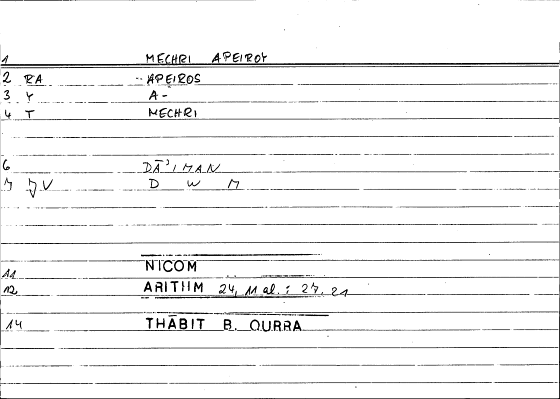 1 MECHRI APEIROY
2 RA -- APEIROS
3 Y A-
4 T MECHRI
6 DĀ'IMAN
D W M
11 NICOM
12 ARITHM 24, 11 al.: 27, 21
14 THĀBIT B. QURRA